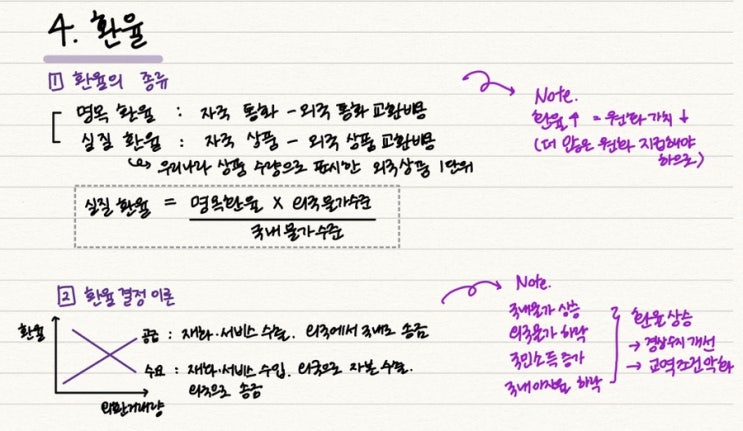 4. 환율
1 환율의 종류
명목 환율 : 자국 통화 - 외국 통화 교환비용
실질 환율 : 자국 상품 - 외국 상품 교환비용
↳ 우리나라 상품 수량으로 표시한 외국상품 1단위
실질 환율 = 명목환율 × 외국물가수준
국내물가수준
Note.
환율↑ = 원화가치↓
(더 많은 원화 지급해야
하므로)
2 환율 결정 이론
환율
공급 : 재화·서비스 수출. 외국에서 국내로 송금
수요 : 재화·서비스 수입. 외국으로 자본 수출.
외국으로 송금
외환거래량
Note.
국내물가 상승
외국물가 하락
국민소득 증가
국내이자율 하락
환율상승
→ 경상수지 개선
→ 교역조건 악화